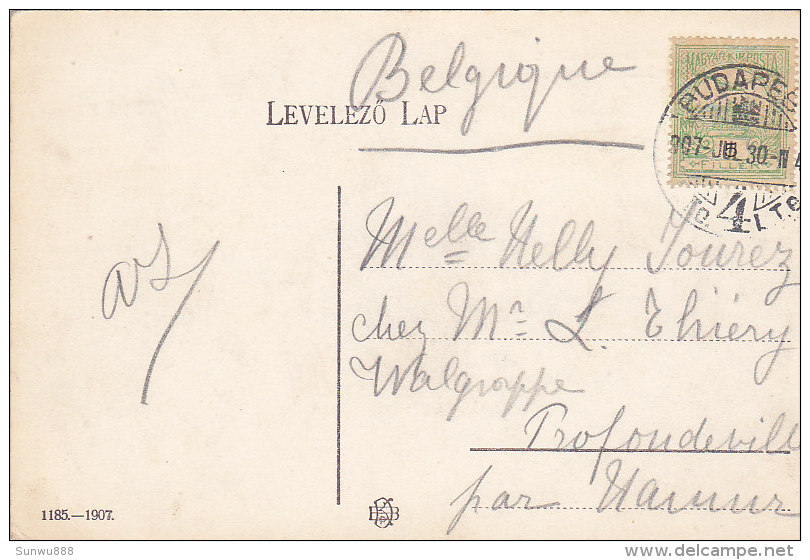 Belgique
LEVELEZŐ LAP
MAGYAR KIR. POSTA
BUDAPES
907-JUL 30-N4
5
FILLÉR
4
Melle Nelly Tourez
chez Mr. L. Thiéry
Walgrappe
Profondeville
par Namur
1185.—1907.
Sunwu888
delcampe.net